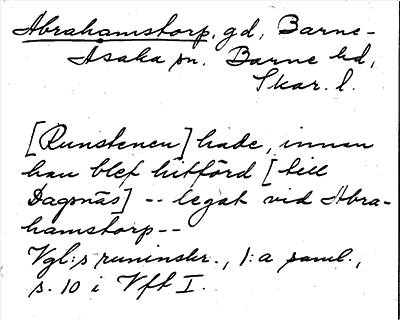 Abrahamstorp, gd, Barne-
Åsaka sn. Barne hd,
Skar. l.
[Runstenen] hade, innan
han blef hitförd [till
Dagsnäs] -- legat vid Abra-
hamstorp --
Vgl:s runinskr., 1:a saml.,
s. 10 i Vft I.